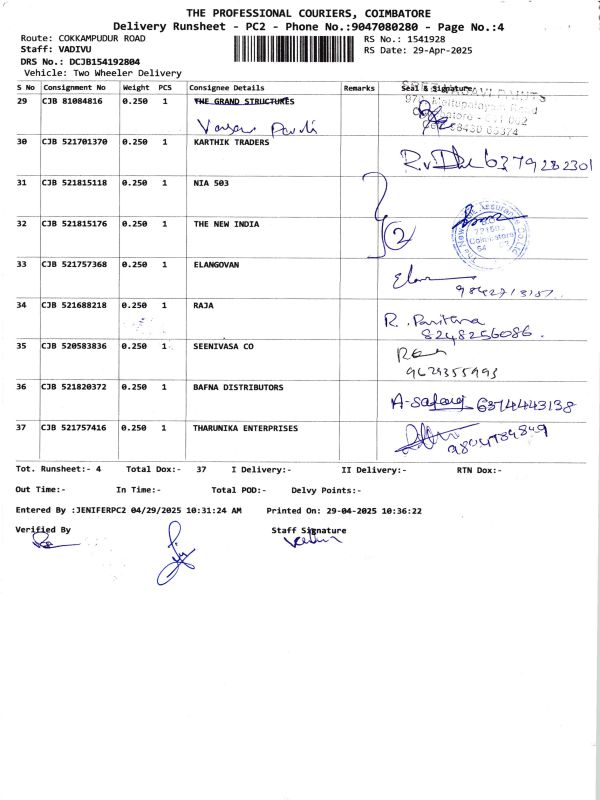 THE PROFESSIONAL COURIERS, COIMBATORE
Delivery Runsheet - PC2 - Phone No.:9047080280 - Page No.:4
Route: COKKAMPUDUR ROAD
RS No.: 1541928
Staff: VADIVU
RS Date: 29-Apr-2025
DRS No.: DCJB154192804
Vehicle: Two Wheeler Delivery
S No Consignment No Weight PCS Consignee Details Remarks Seal & Signature
29 CJB 81084816 0.250 1 THE GRAND STRUCTURES
30 CJB 521701370 0.250 1 KARTHIK TRADERS
6379282301
31 CJB 521815118 0.250 1 NIA 503
32 CJB 521815176 0.250 1 THE NEW INDIA
2
Coimbatore
33 CJB 521757368 0.250 1 ELANGOVAN
34 CJB 521688218 0.250 1 RAJA
R. Pavithra
8248256086.
35 CJB 520583836 0.250 1 SEENIVASA CO
9629355993
36 CJB 521820372 0.250 1 BAFNA DISTRIBUTORS
6374443138
37 CJB 521757416 0.250 1 THARUNIKA ENTERPRISES
Tot. Runsheet:- 4 Total Dox:- 37 I Delivery:- II Delivery:- RTN Dox:-
Out Time:- In Time:- Total POD:- Delvy Points:-
Entered By :JENIFERPC2 04/29/2025 10:31:24 AM Printed On: 29-04-2025 10:36:22
Verified By Staff Signature